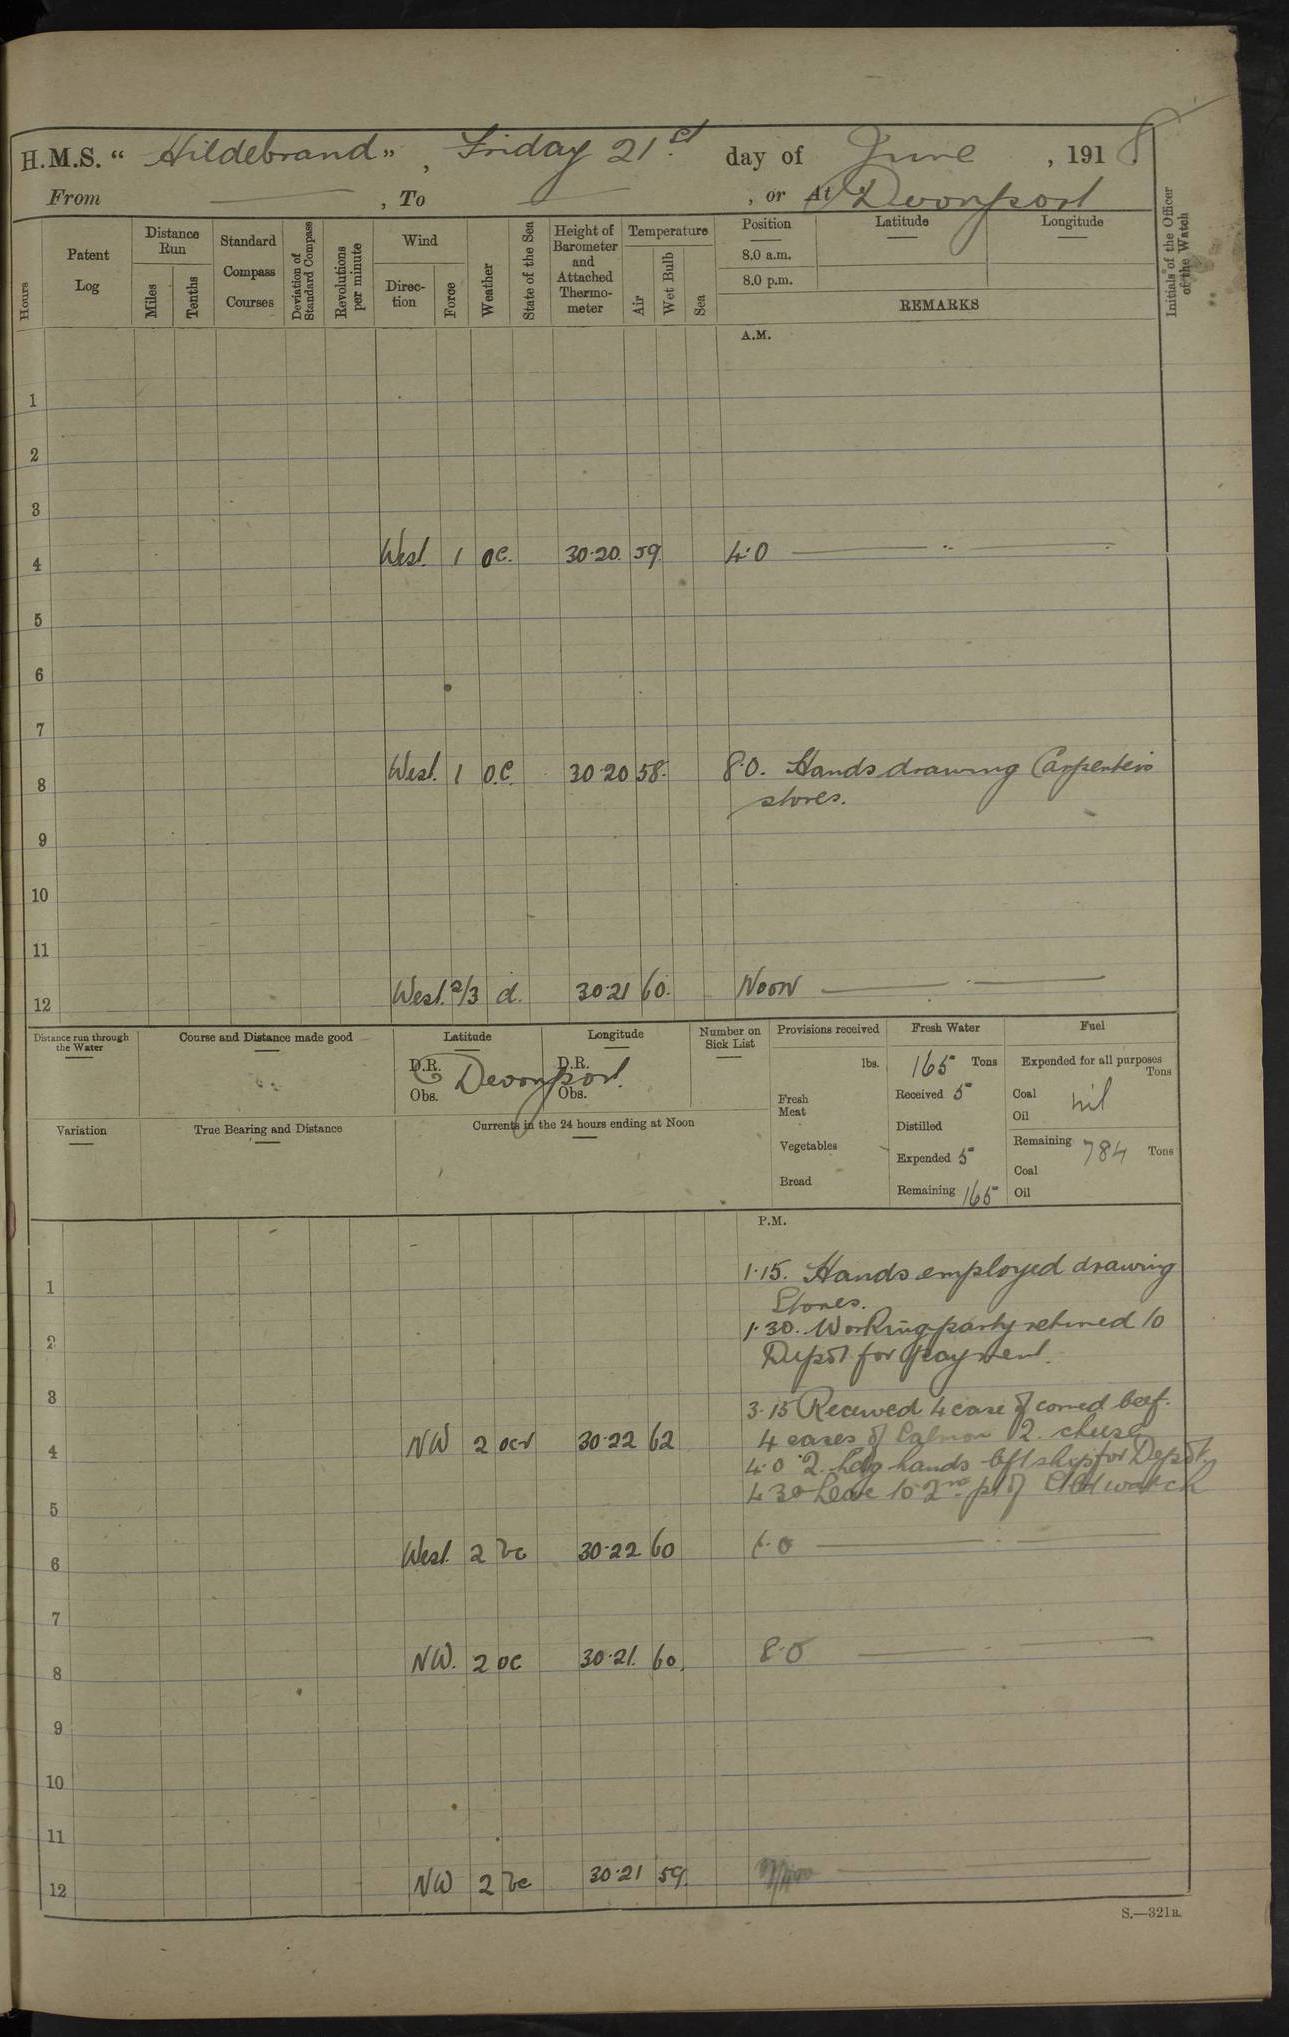 H.M.S. “ Hildebrand „ , Friday 21st day of June , 1918
From , To , or At Devonport
Hours
Patent Log
Distance Run
Miles
Tenths
Standard Compass Courses
Deviation of Standard Compass
Revolutions per minute
Wind
Direc-tion
Force
Weather
State of the Sea
Height of Barometer and Attached Thermo-meter
Temperature
Air
Wet Bulb
Sea
Position
Latitude
Longitude
8.0 a.m.
8.0 p.m.
REMARKS
Initials of the Officer of the Watch
A.M.
1
2
3
4 West. 1 oc. 30·20. 59. 4·0
5
6
7
8 West. 1 o.c. 30·20 58. 8·0. Hands drawing Carpenters
stores.
9
10
11
12 West. 2/3 d. 30·21 60. Noon
Distance run through the Water
Course and Distance made good
Latitude
D.R.
Obs.
Devonport.
Longitude
D.R.
Obs.
Number on Sick List
Provisions received
lbs.
Fresh Meat
Vegetables
Bread
Fresh Water
165 Tons
Received 5
Distilled
Expended 5
Remaining 165
Fuel
Expended for all purposes
Tons
Coal
Oil
nil
Remaining 784 Tons
Coal
Oil
Variation
True Bearing and Distance
Currents in the 24 hours ending at Noon
P.M.
1 1·15. Hands employed drawing
Stores.
2 1·30. Working party returned to
Depôt for payment.
3 3·15 Received 4 case of corned beef.
4 cases of Salmon 2. cheese
4 NW 2 ocr 30·22 62 4·0 2 hands left ship for Depôt.
4 30 Leave to 2nd pt of watch
5
6 West. 2 bc 30·22 60 6·0
7
8 NW. 2 oc 30·21. 60. 8·0
9
10
11
12 NW 2 bc 30·21 59.
S.—321a.